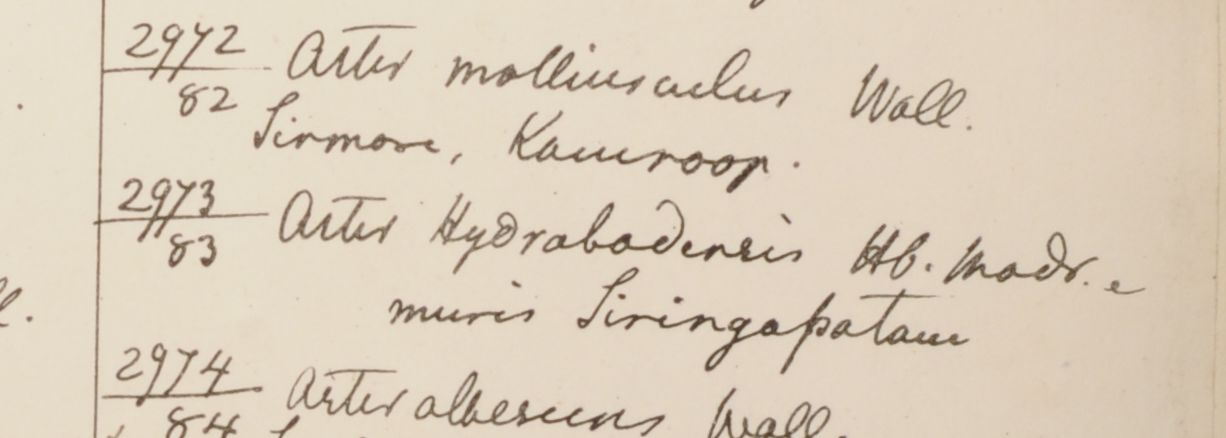 2972 Aster molliusculus Wall.
82
Sirmore, Kamroop.
2973 Aster Hydrabadensis Hb. Madr. e
83
muris Siringapatam
2974 Aster albescens Wall.
84